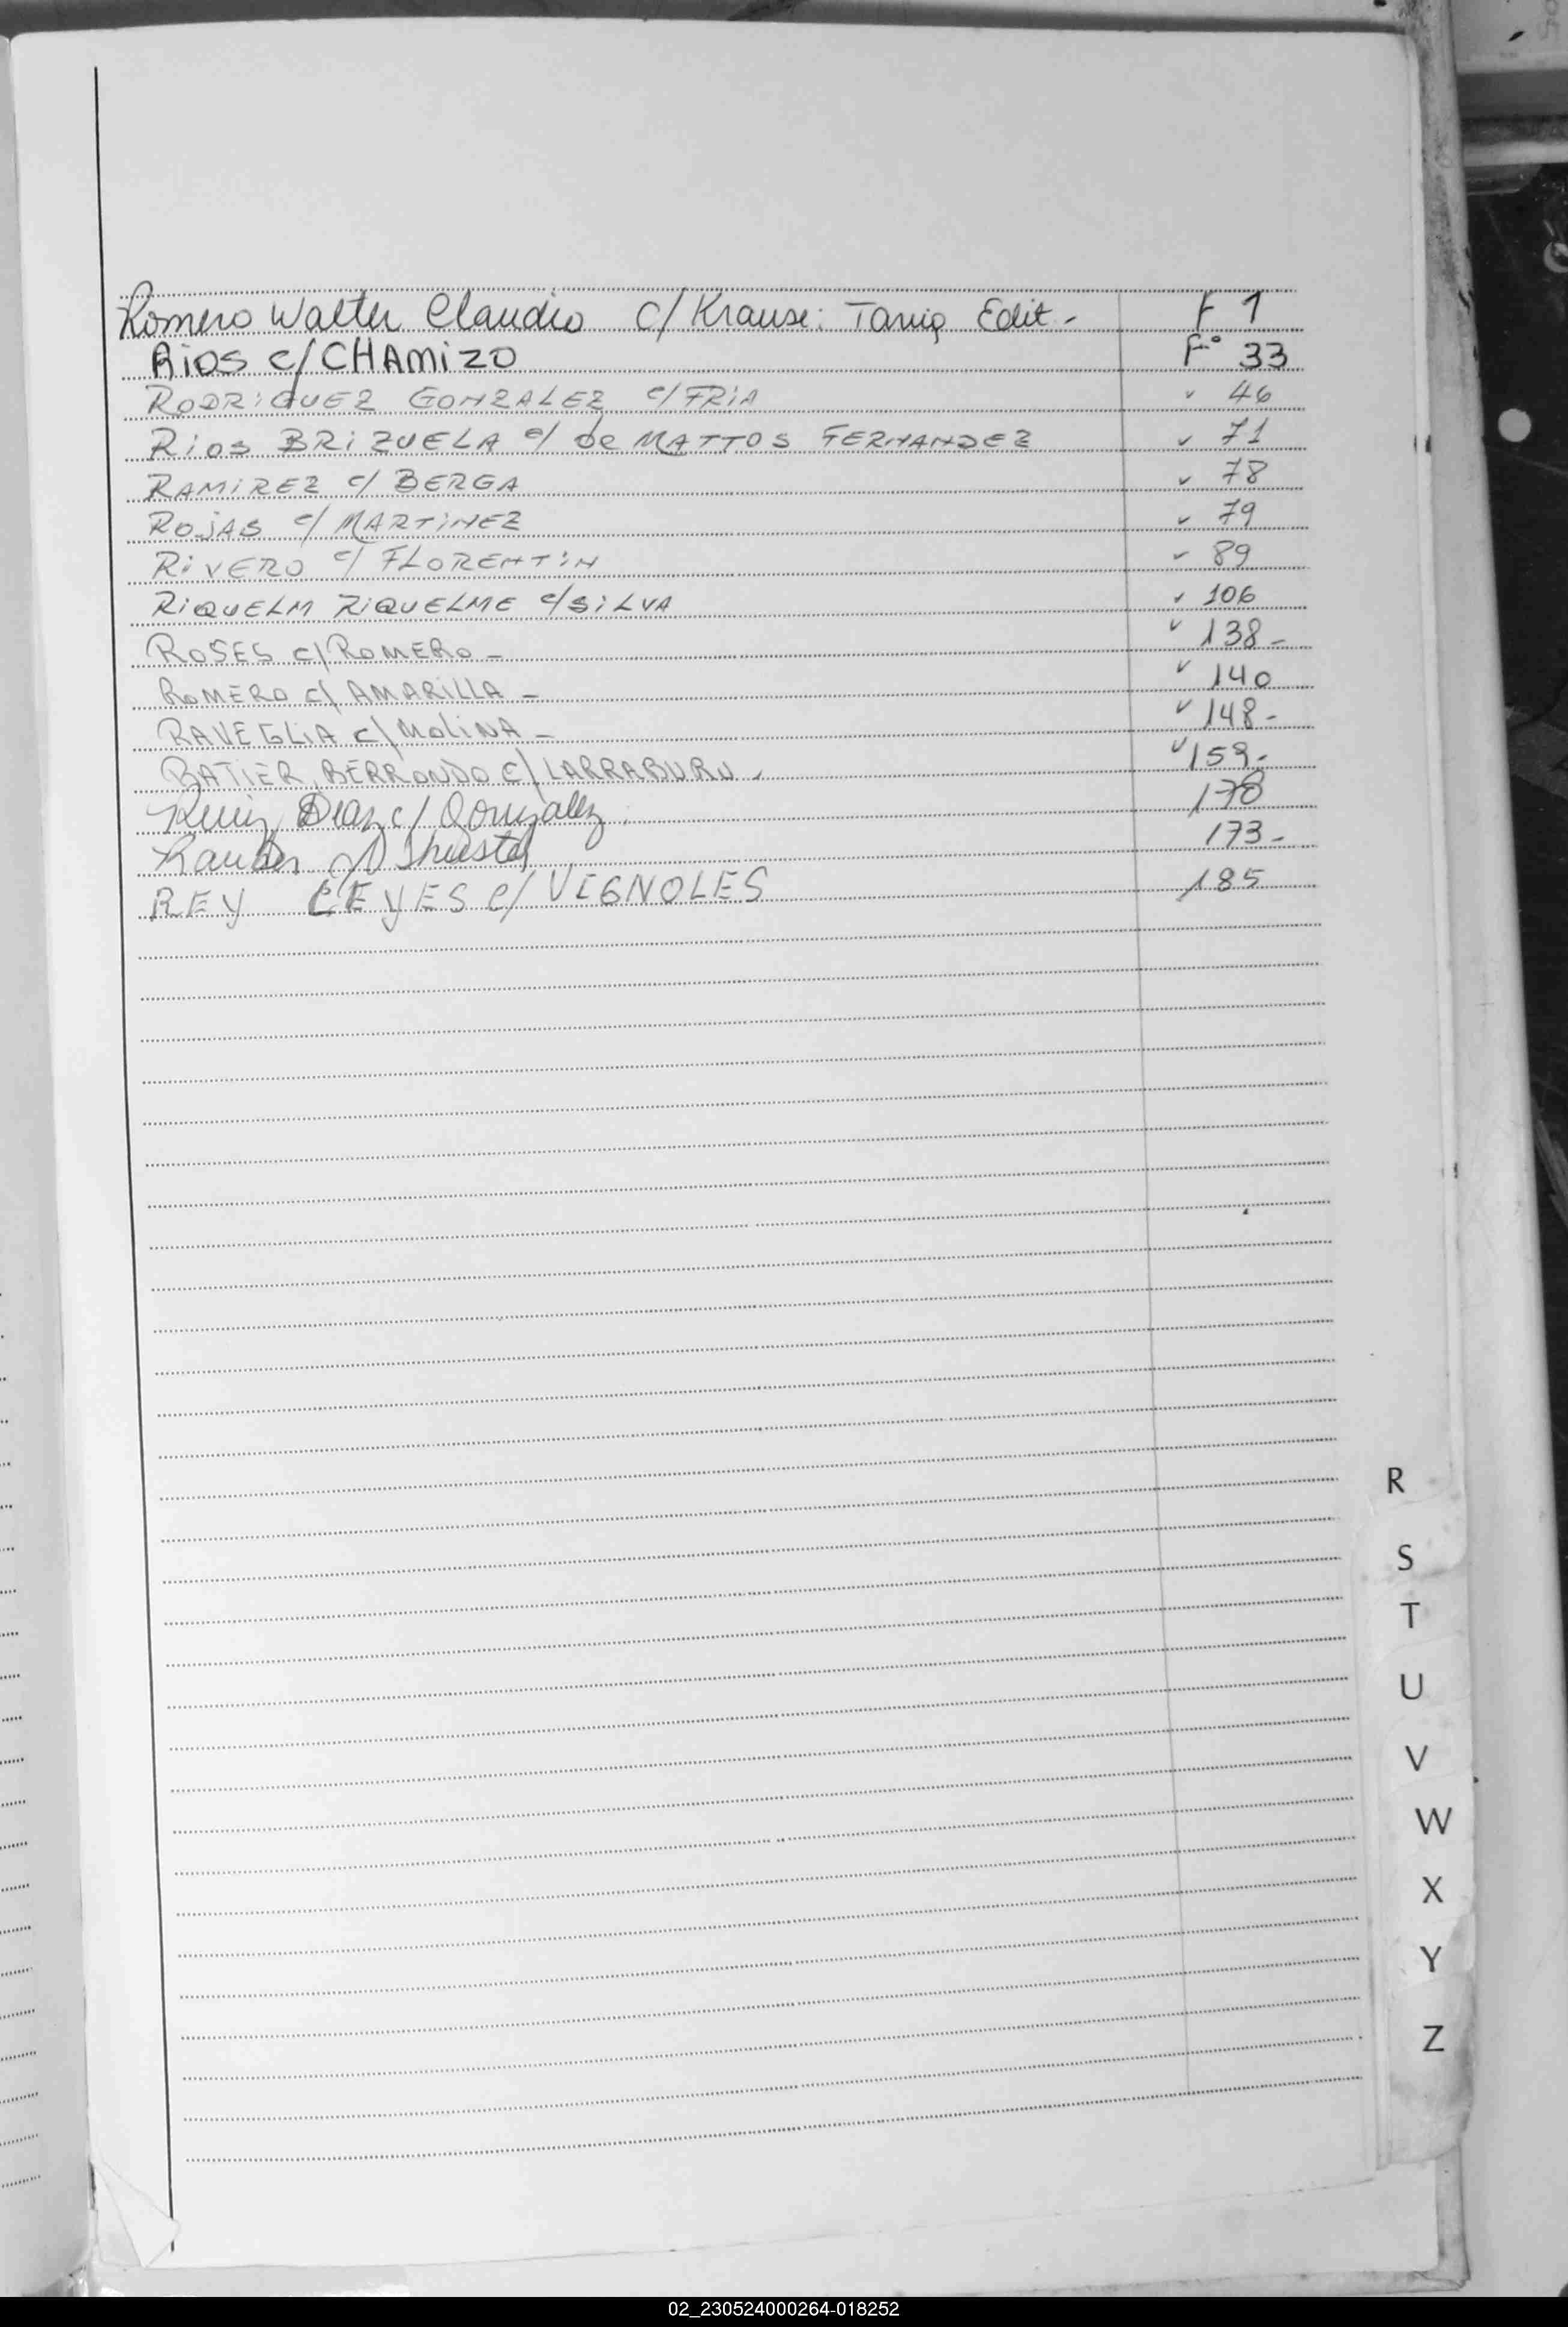 Romero Walter Claudio c/ Krause: Edit - F 1
RIOS c/ CHAMIZO Fº 33
RODRIGUEZ GONZALEZ c/ FRIA ✓ 46
Rios BRIZUELA c/ de MATTOS FERNANDEZ ✓ 71
RAMIREZ c/ BERGA ✓ 78
ROJAS c/ MARTINEZ ✓ 79
RIVERO c/ FLORENTIN ✓ 89
RIQUELM RIQUELME c/ SILVA ✓ 106
ROSES c/ ROMERO - ✓ 138 -
ROMERO c/ AMARILLA - ✓ 140
RAVEGLIA c/ MOLINA - ✓ 148 -
BATIER BERRONDO c/ LARRABURU. ✓ 159 -
Ruiz Diaz c/ Gonzalez. 170
173 -
REY REYES c/ VIGNOLES 185
R
S
T
U
V
W
X
Y
Z
02_230524000264-018252